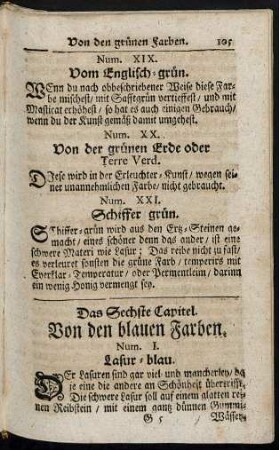 Von den grünen Farben. 105
Num. XIX.
Vom Englisch-grün.
WEnn du nach obbeschriebener Weise diese Far-
be mischest / mit Safftgrün vertieffest / und mit
Masticat erhöhest / so hat es auch einigen Gebrauch /
wenn du der Kunst gemäß damit umgehest.
Num. XX.
Von der grünen Erde oder
Terre Verd.
DIese wird in der Erleuchter-Kunst / wegen sei-
ner unannehmlichen Farbe / nicht gebraucht.
Num. XXI.
Schiffer grün.
SChiffer-grün wird aus den Ertz-Steinen ge-
macht / eines schöner denn das ander / ist eine
schwere Materi wie Lasur; Das reibe nicht zu fast /
es verleuret sonsten die grüne Farb / temperirs mit
Eyerklar-Temperatur / oder Permentleim / darinn
ein wenig Honig vermengt sey.
Das Sechste Capitel.
Von den blauen Farben.
Num. I.
Lasur-blau.
DEr Lasuren sind gar viel und mancherley / da
je eine die andere an Schönheit übertrifft.
Die schwere Lasur soll auf einem glatten rei-
nen Reibstein / mit einem gantz dünnen Gummi-
G 5 Wasser